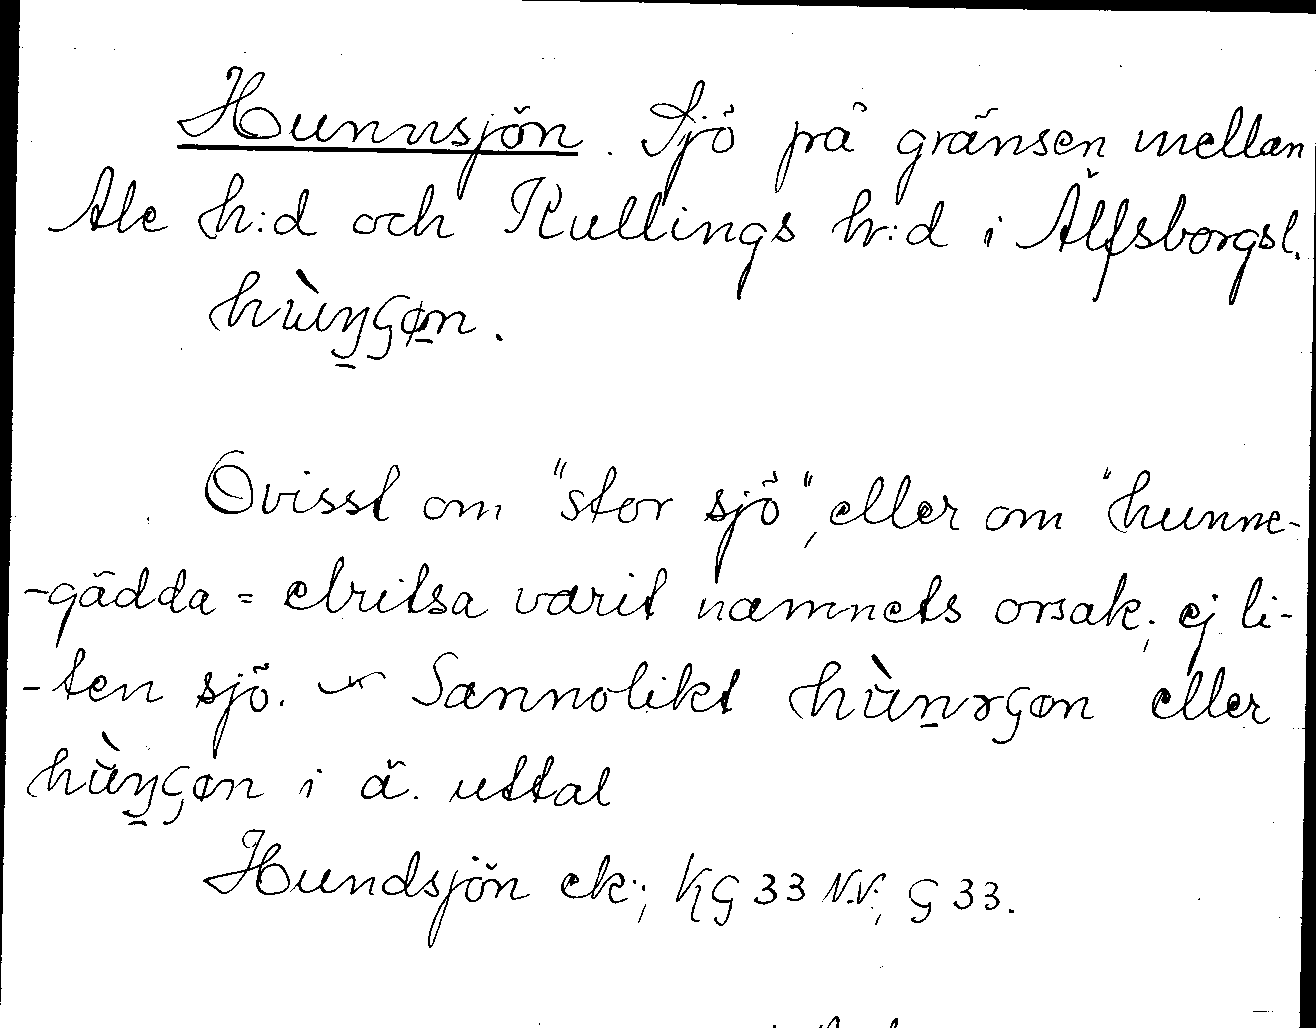 Hunnsjön. Sjö på gränsen mellan
Ale h:d och Kullings h:d i Älfsborgsl.
hùŋʂøn.
Ovisst om "stor sjö", eller om "hunne-
-gädda = elritsa varit namnets orsak; ej li-
-ten sjö. Sannolikt eller
i ä. uttal
Hundsjön ek.; KG 33 N.V.; G 33.